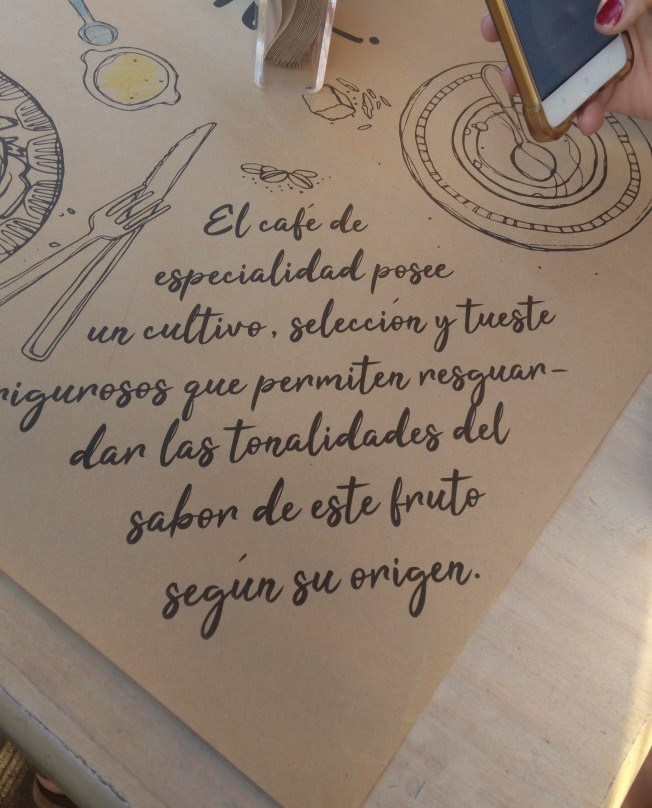 El café de
especialidad posee
un cultivo, selección y tueste
rigurosos que permiten resguar-
dar las tonalidades del
sabor de este fruto
según su origen.